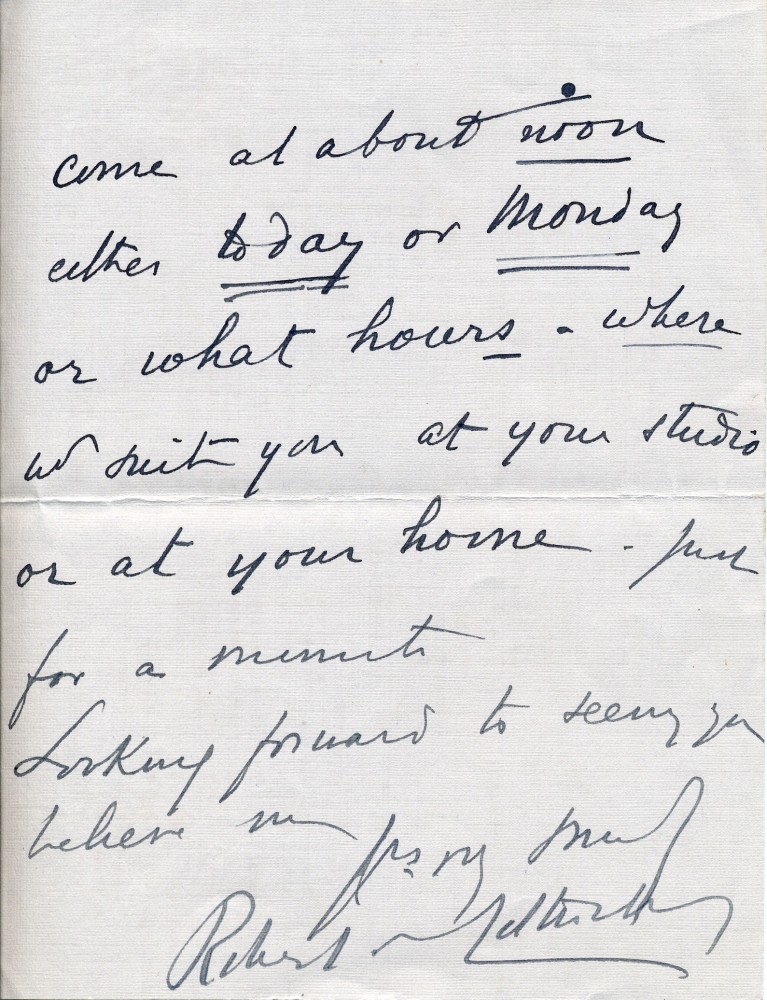 come at about noon
either today or Monday
or what hours - where
wd suit you at your studio
or at your home - just
for a minute
Looking forward to seeing you
believe me yrs vy
Robert